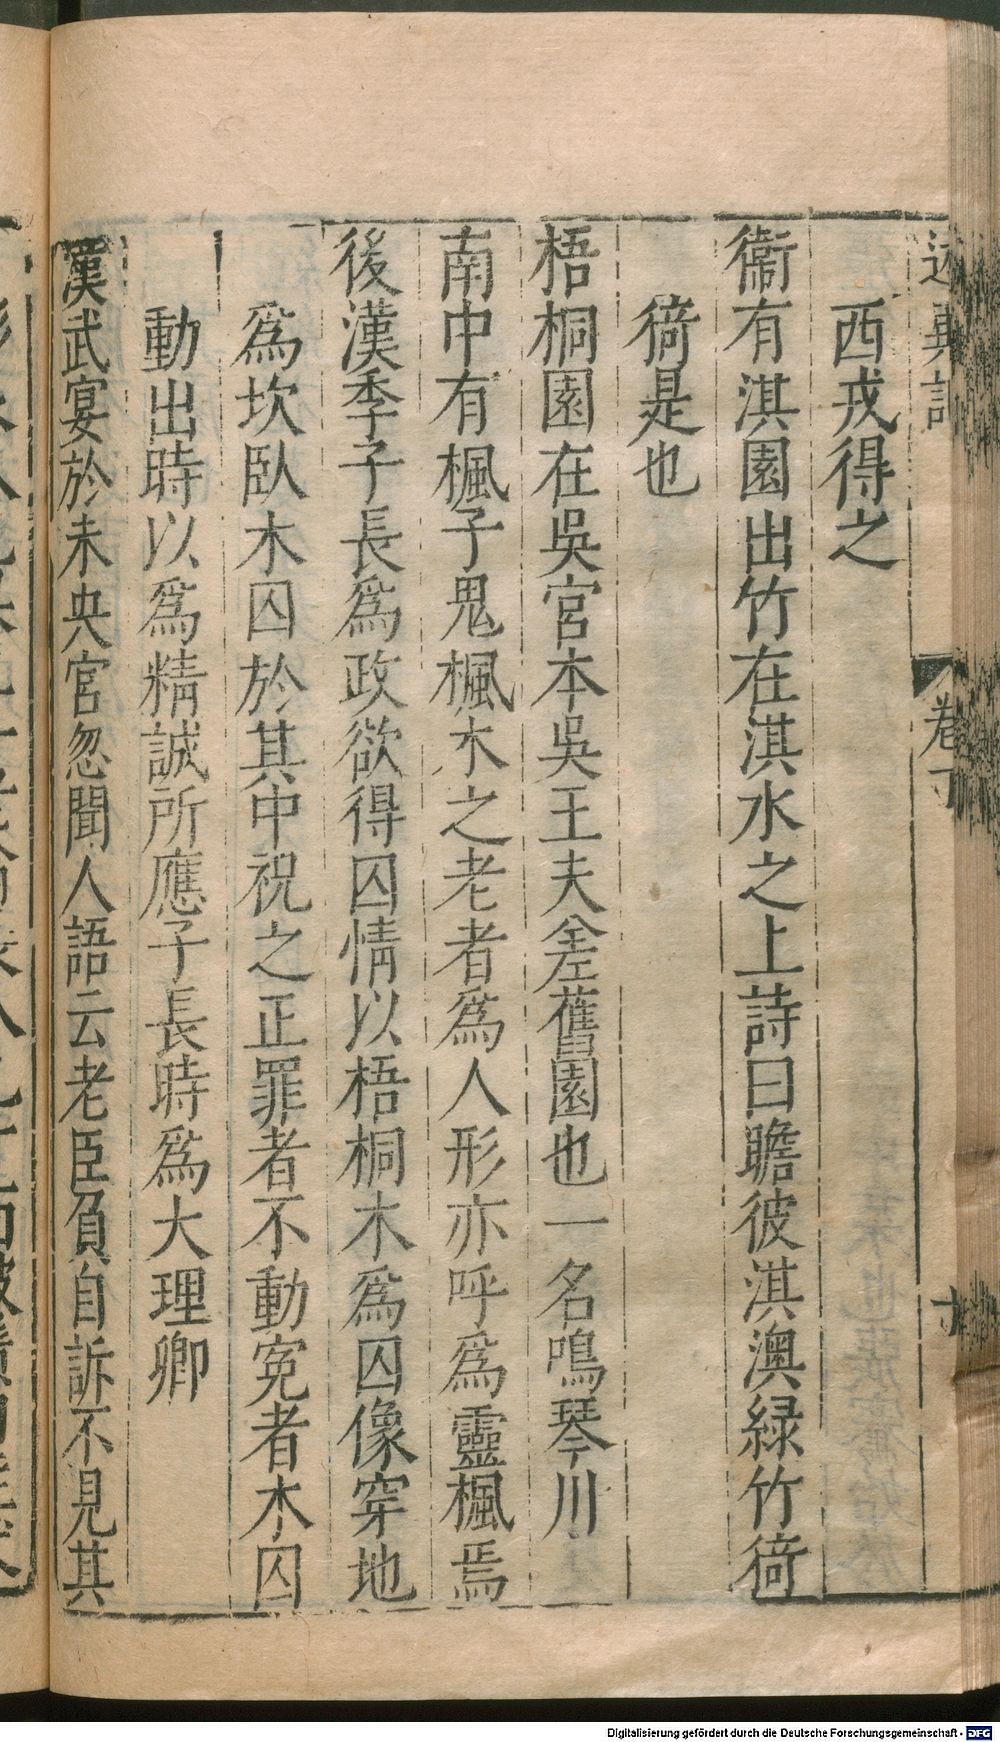 述異記 卷下 十
西戎得之
衞有淇園出竹在淇水之上詩曰瞻彼淇澳緑竹猗
猗是也
梧桐園在吳宮本吳王夫差舊園也一名鳴琴川
南中有楓子鬼楓木之老者爲人形亦呼爲靈楓焉
後漢季子長爲政欲得囚情以梧桐木爲囚像穿地
爲坎臥木囚於其中祝之正罪者不動寃者木囚
動出時以爲精誠所應子長時爲大理卿
漢武宴於未央宮忽聞人語云老臣負自訴不見其
Digitalisierung gefördert durch die Deutsche Forschungsgemeinschaft - DFG